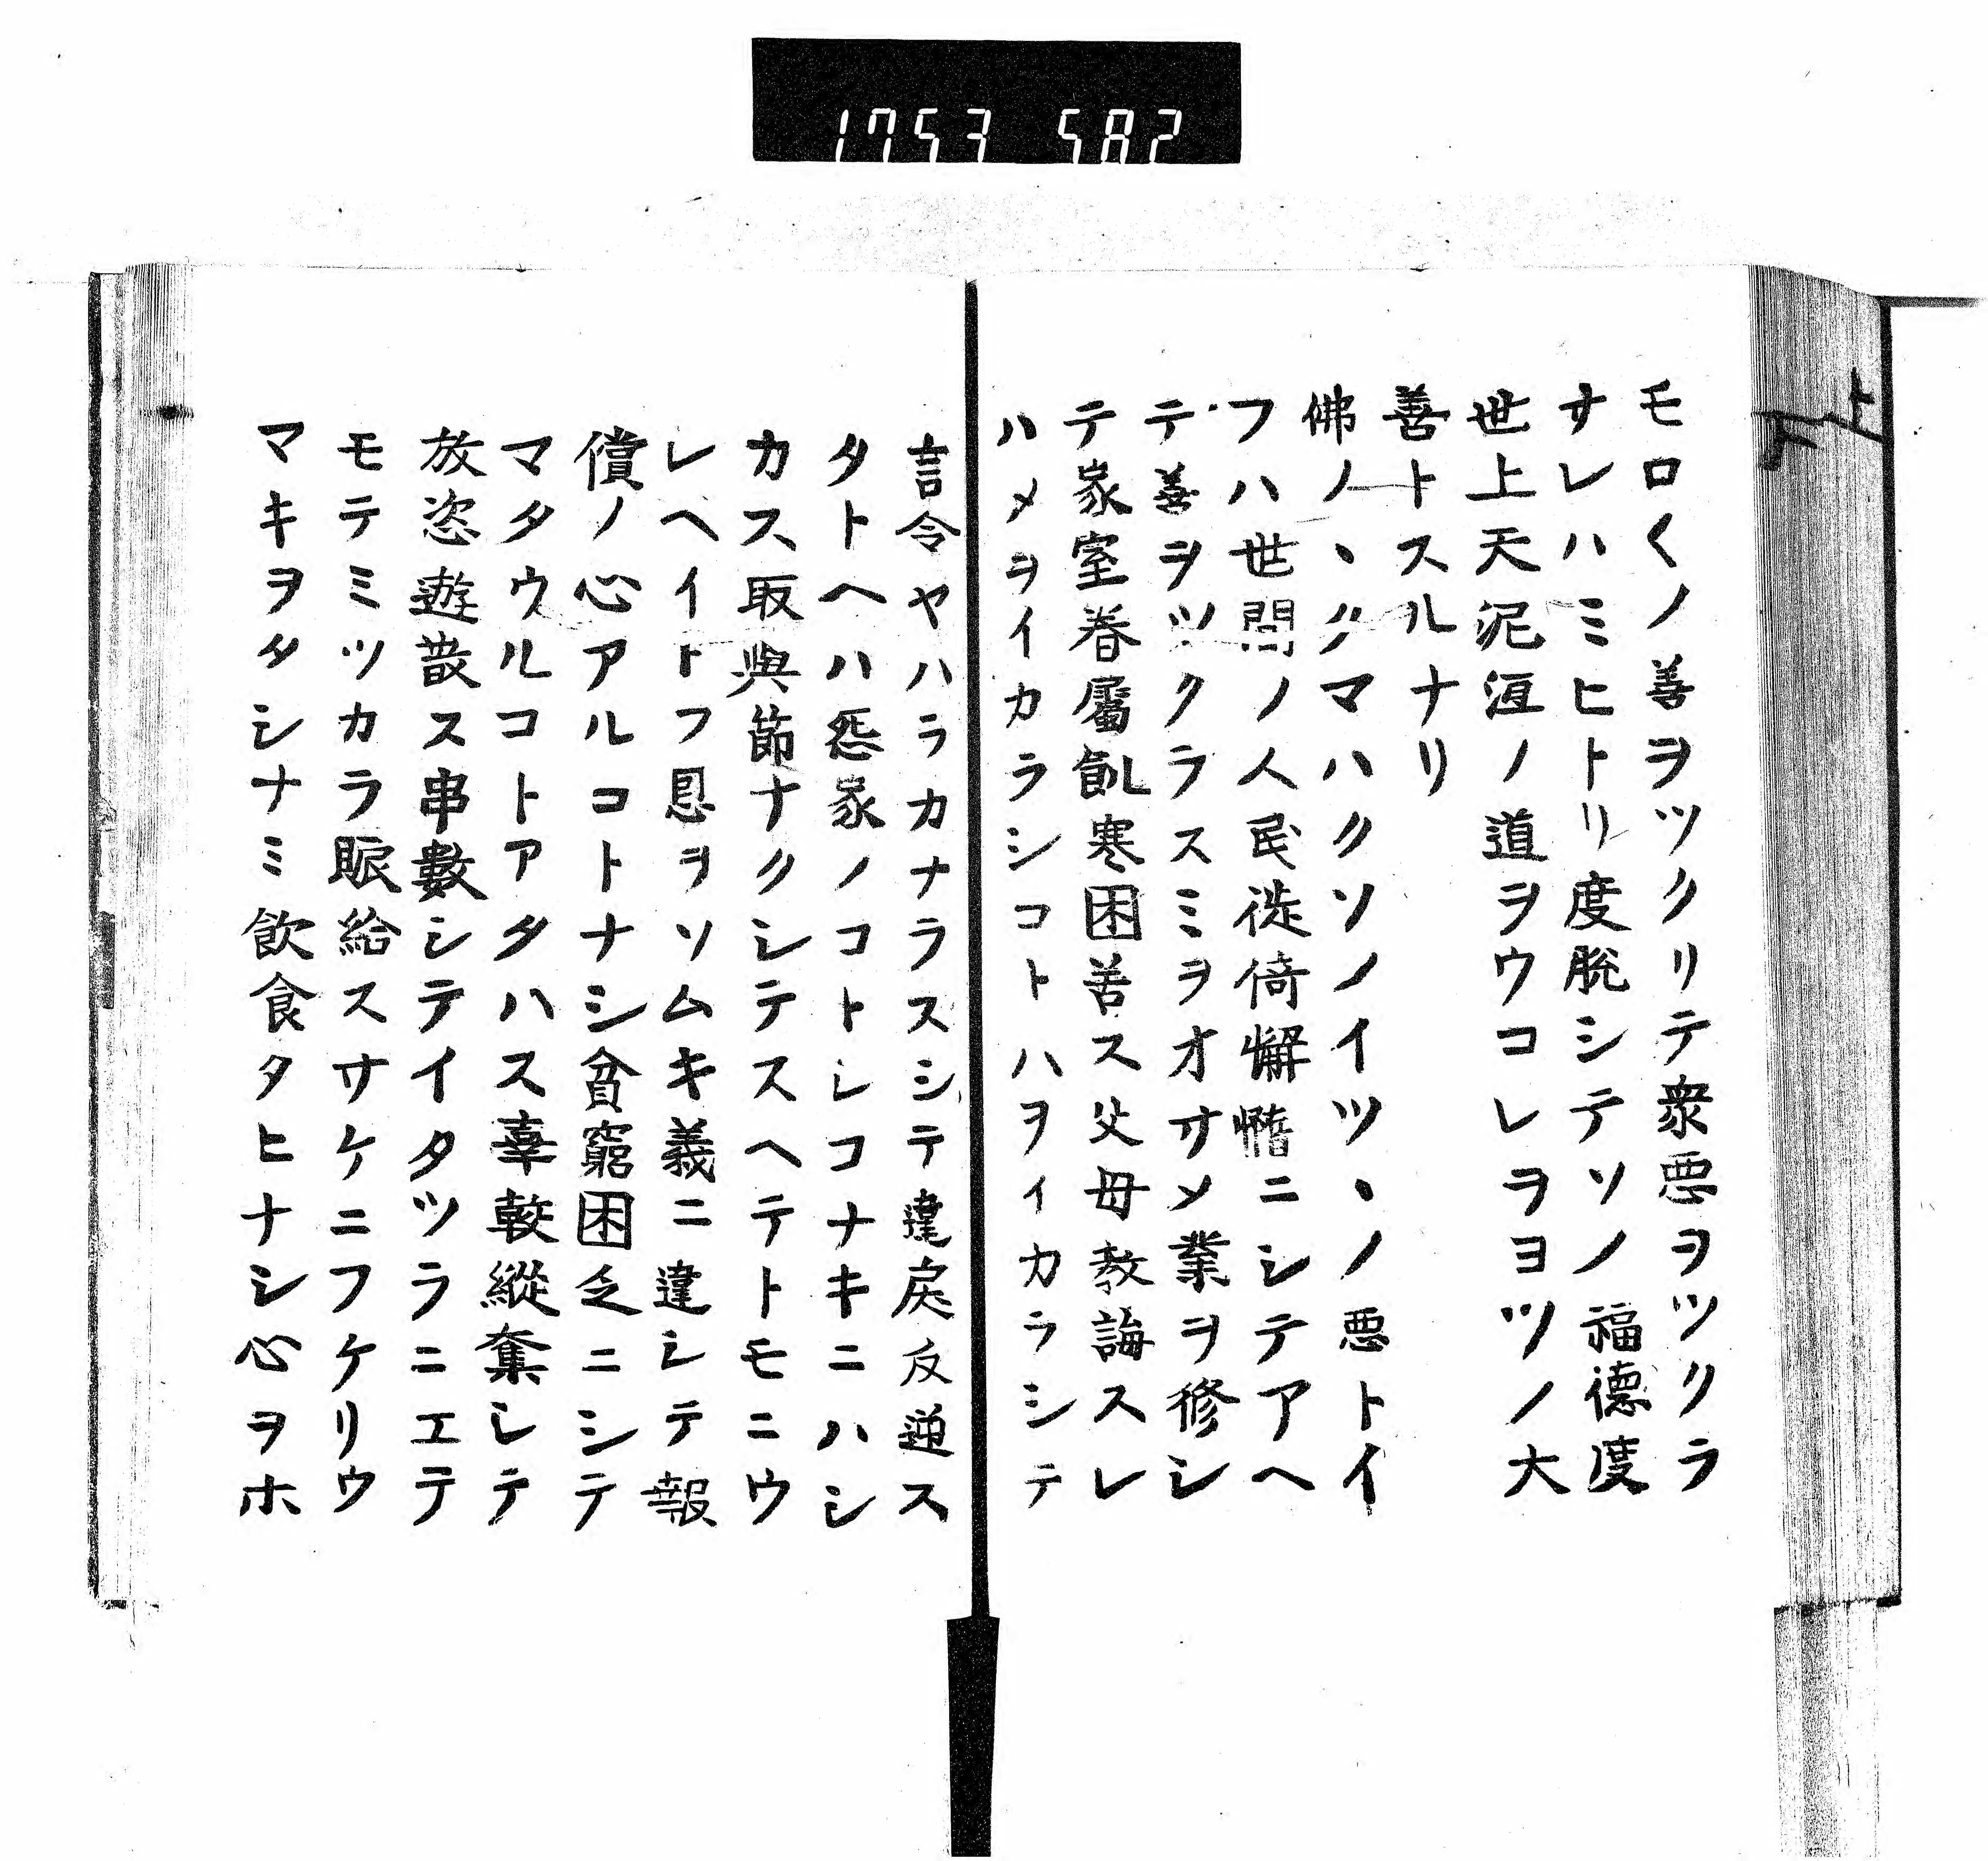 1753 582
上
下
モロくノ善ヲツクリテ衆悪ヲツクラ
サレハミヒトリ度脱シテソノ福徳度
世上天泥洹ノ道ヲウコレヲヨツノ大
善トスルナリ
佛ノヽタマハクソノイツヽノ悪トイ
フハ世間ノ人民徙倚懈惰ニシテアヘ
テ善ヲツクラスミヲオサメ業ヲ修シ
テ家室眷屬飢寒困苦ス父母教誨スレ
ハメヲイカラシコトハヲイカラシテ
言令ヤハラカナラスシテ違戾反逆ス
タトヘハ怨家ノコトシコナキニハシ
カス取與節ナクシテスヘテトモニウ
レヘイトフ恩ヲソムキ義ニ違シテ報
償ノ心アルコトナシ貧窮困乏ニシテ
マタウルコトアタハス辜較縱奪シテ
放恣遊散ス串數シテイタツラニエテ
モテミツカラ賑給スサケニフケリウ
マキヲタシナミ飲食タヒナシ心ヲホ